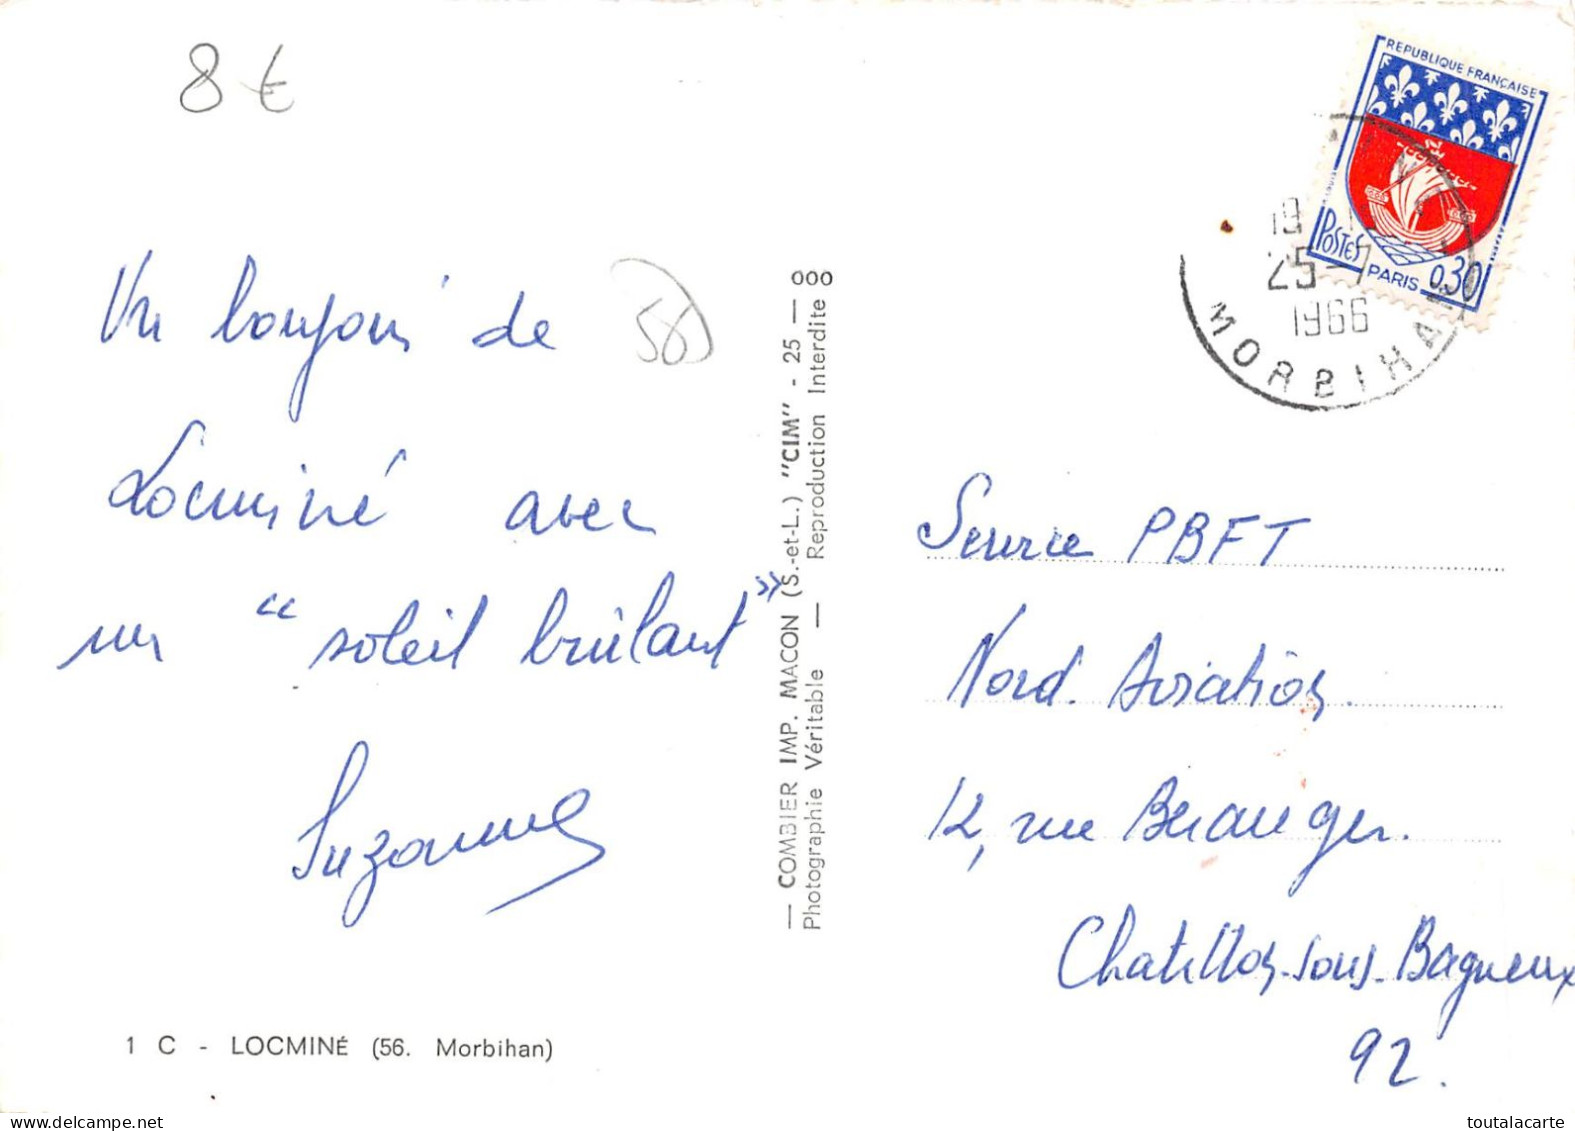 8 €
Un bonjour de
Locminé avec
un "soleil brûlant"
Suzanne
56
1 C - LOCMINÉ (56. Morbihan)
— COMBIER IMP. MACON (S.-et-L.) "CIM" - 25 — 000
Photographie Véritable — Reproduction Interdite
REPUBLIQUE FRANÇAISE
POSTES
PARIS
0,30
19
25-7
1966
MORBIHAN
Service PBFT
Nord. Aviation.
12, rue Béranger.
Chatillon-sous-Bagneux
92.
toutalacarte